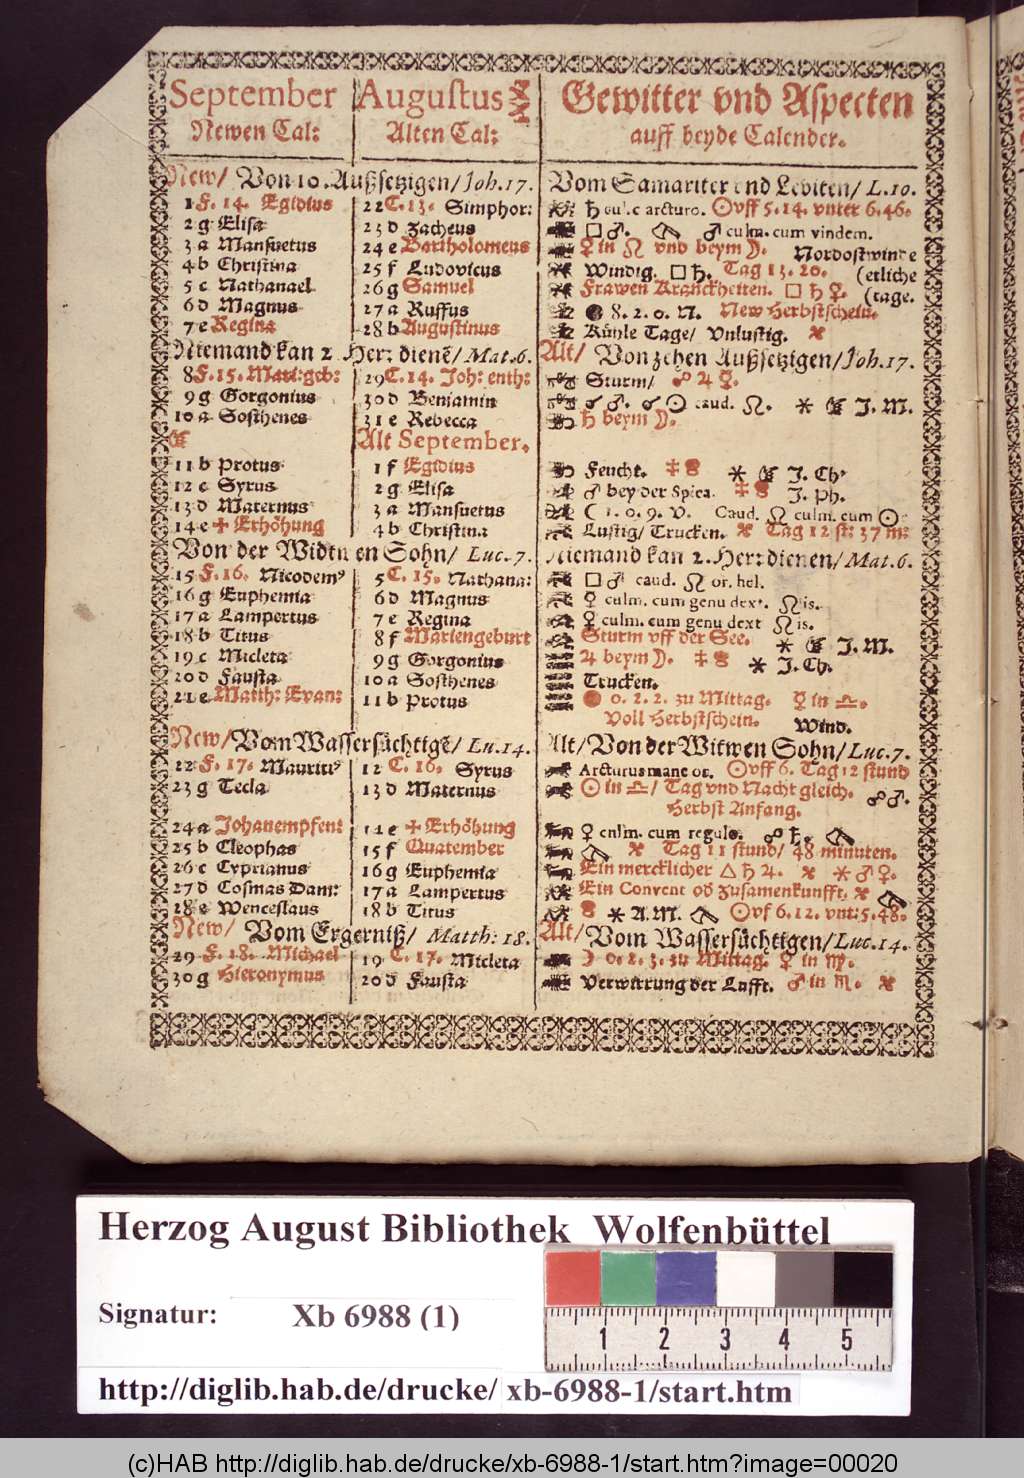 September Augustus Gewitter vnd Aspecten
Newen Cal: Alten Cal: auff beyde Calender.
New/ Von 10. Außsetzigen/Joh.17. Vom Samariter vnd Leviten/ L.10.
1 F. 14. Egidius 22 C. 13. Simphor: ♄ arcturo. ☉vff 5.14. vnter 6.46.
2 g Elisa 23 d Zacheus □ ♂. ♂ culm. cum vindem.
3 a Mansuetus 24 e Bartholomeus ♀ in ☊ vnd beym ☽. Nordostwinde
4 b Christina 25 f Ludovicus Windig. □ ♄. Tag 13. 20. (etliche
5 c Nathanael 26 g Samuel Frawen Kranckheiten. □ ♄ ♀. (tage.
6 d Magnus 27 a Ruffus ● 8. 2. 0. N. New Herbstschein.
7 e Regina 28 b Augustinus Kühle Tage/ Vnlustig.
Niemand kan 2 Herr: dienē/ Mat.6. Alt/ Von zehen Außsetzigen/Joh.17.
8 F. 15. Mari:geb: 29 C. 14. Joh: enth: Sturm/ ☍ ♃ ♀.
9 g Gorgonius 30 d Benjamin ☌ ♂. ☌ ☉ caud. ☊. J. M.
10 a Sosthenes 31 e Rebecca ♄ beym ☽.
Alt September.
11 b Protus 1 f Egidius Feucht. J. Ch.
12 c Syrus 2 g Elisa ♂ bey der Spica. J. Ph.
13 d Maternus 3 a Mansuetus ☾ 1. 0. 9. V. Caud. ☊ culm. cum ☉
14 e ✢ Erhöhung 4 b Christina Lustig/ Trucken. Tag 12 st: 37 m:
Von der Widtwen Sohn/ Luc.7. Niemand kan 2. Herr: dienen/ Mat.6.
15 F. 16. Nicodem⁹ 5 C. 15. Nathana: □ ♂ caud. ☊ or. hel.
16 g Euphemia 6 d Magnus ♀ culm. cum genu dext. ☊is.
17 a Lampertus 7 e Regina ♀ culm. cum genu dext ☊is.
18 b Titus 8 f Mariengeburt Sturm vff der See. J. M.
19 c Micleta 9 g Gorgonius ♃ beym ☽. J. Ch.
20 d Fausta 10 a Sosthenes Trucken.
21 e Matth: Evan: 11 b Protus 0. 2. 2. zu Mittag. ☿ in ♎.
Voll Herbstschein. Wind.
New/Vom Wassersüchtigē/ Lu.14. Alt/Von der Witwen Sohn/Luc.7.
22 F. 17. Mauriti⁹ 12 C. 16. Syrus Arcturus mane or. ☉vff 6. Tag 12 stund
23 g Tecla 13 d Maternus ☉ in ♎/ Tag vnd Nacht gleich. ☍♂.
Herbst Anfang.
24 a Johanempfen: 14 e ✢ Erhöhung ♀ culm. cum regulo. ☍ ♄.
25 b Cleophas 15 f Quatember Tag 11 stund/ 48 minuten.
26 c Cyprianus 16 g Euphemia Ein mercklicher △ ♄ ♃. ♂ ♀.
27 d Cosmas Dam: 17 a Lampertus Ein Convent oď Zusamenkunfft.
28 e Wenceslaus 18 b Titus A. M. ☉vf 6.12. vnt:5.48.
New/ Vom Ergerniß/ Matth: 18. Alt/Vom Wassersüchtigen/Luc.14.
29 F. 18. Michael 19 C. 17. Micleta ☽ 0. 2. 3. zu Mittag. ♀ in ♍.
30 g Hieronymus 20 d Fausta Verwirrung der Lufft. ♂ in ♏.
Herzog August Bibliothek Wolfenbüttel
Signatur: Xb 6988 (1)
1 2 3 4 5
http://diglib.hab.de/drucke/ xb-6988-1/start.htm
(c)HAB http://diglib.hab.de/drucke/xb-6988-1/start.htm?image=00020